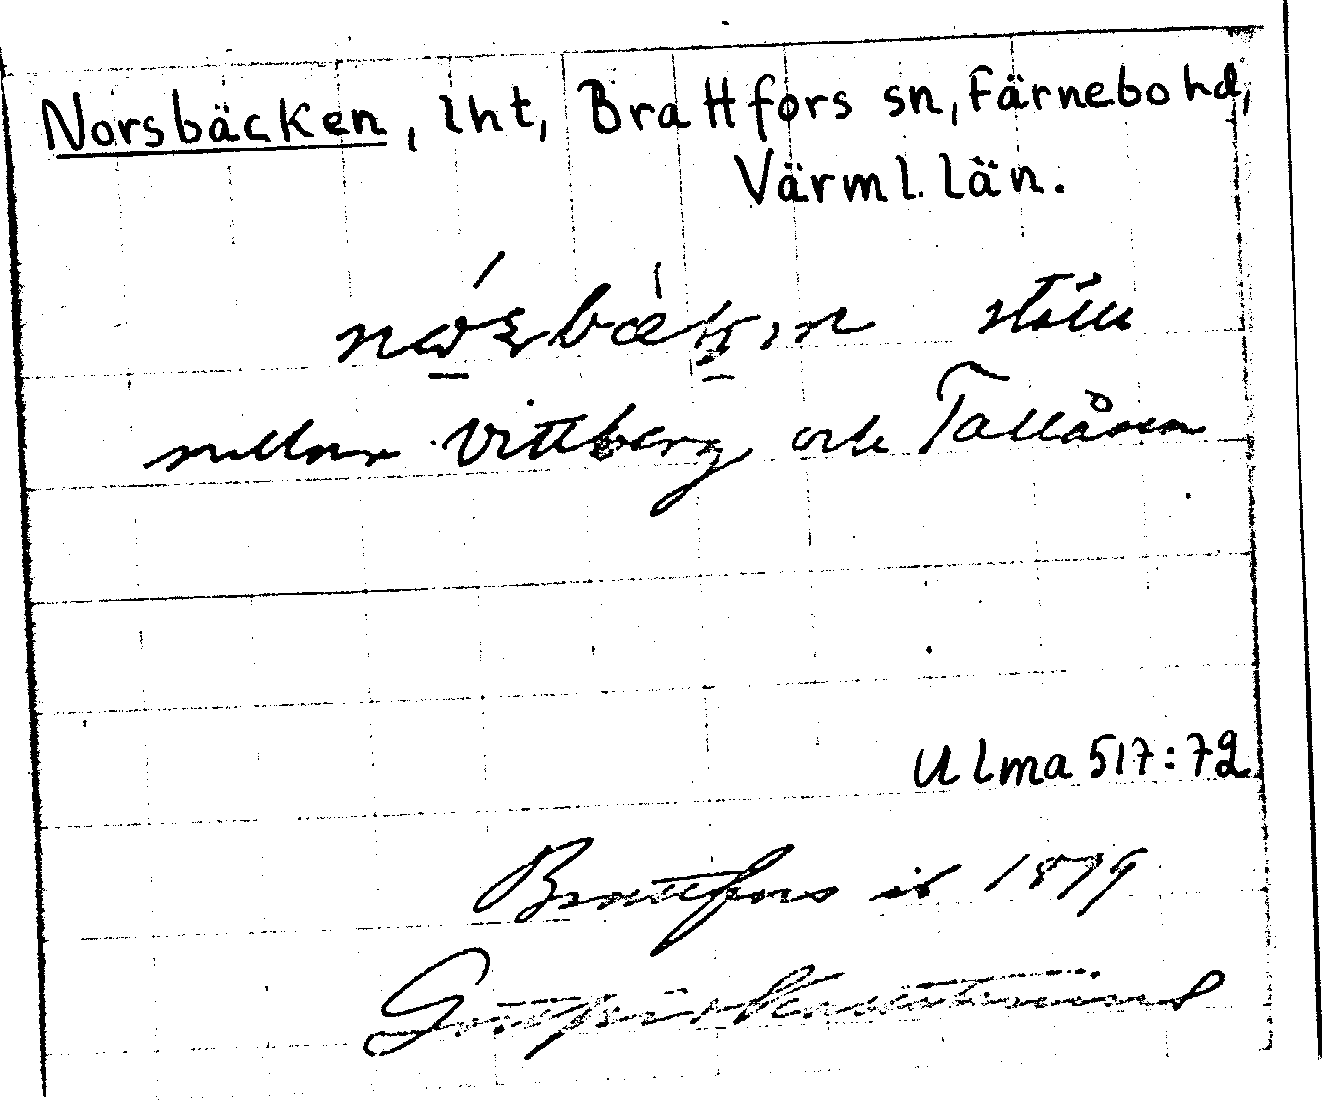 Norsbäcken, lht, Brattfors sn, Färnebo hd,
Värml. län.
ställe
mellan Vittberg och Tallåsen
Ulma 517:72
Brattfors is 1879
Gottfrid